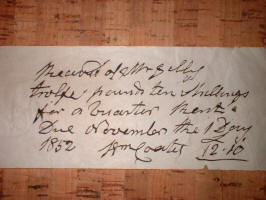 Received of Mr Gilby
twelve pounds ten Shillings
for a Quarter Rent
Due November the 1 Day
1852 Wm Coates 12-10